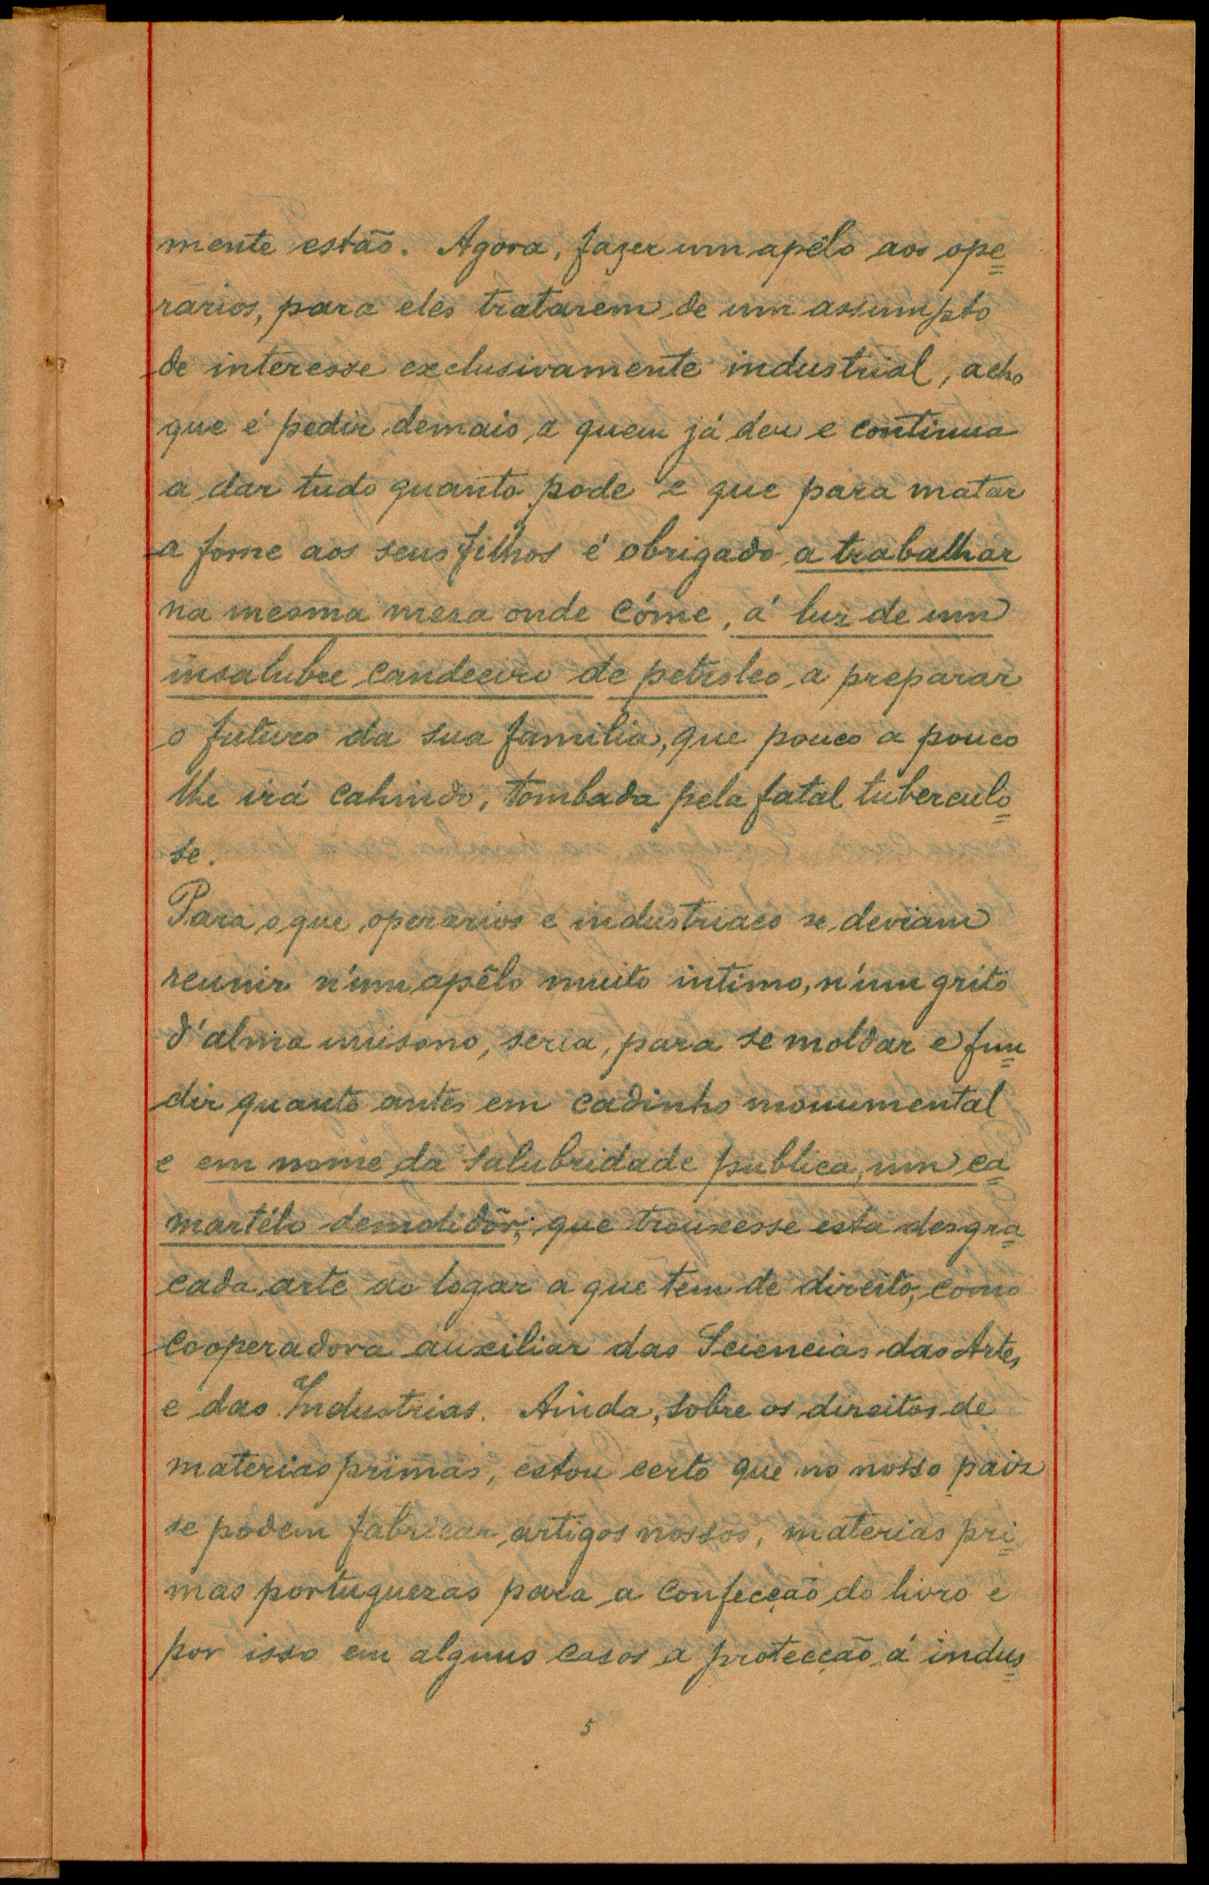 mente estão. Agora, fazer um apêlo aos ope=
rarios, para eles tratarem de um assumpto
de interesse exclusivamente industrial, acho
que é pedir demais a quem já deu e continua
a dar tudo quanto pode e que para matar
a fome aos seus filhos é obrigado a trabalhar
na mesma mesa onde cóme, á luz de um
insalubre candeeiro de petroleo a preparar
o futuro da sua familia, que pouco a pouco
lhe irá cahindo, tombada pela fatal tuberculo=
se.
Para o que operarios e industriaes se deviam
reunir n'um apêlo muito intimo, n'um grito
d'alma unisono, seria, para se moldar e fun=
dir quanto antes em cadinho monumental
e em nome da salubridade publica, um ca=
martélo demolidôr; que trouxesse esta desgra=
cada arte ao logar a que tem de direito, como
cooperadora auxiliar das Sciencias das Artes,
e das Industrias. Ainda, sobre os direitos de
materias primas, estou certo que no nosso paiz
se podem fabricar artigos nossos, materias pri=
mas portuguezas para a confecção do livro e
por isso em alguns casos a protecção á indus=
5